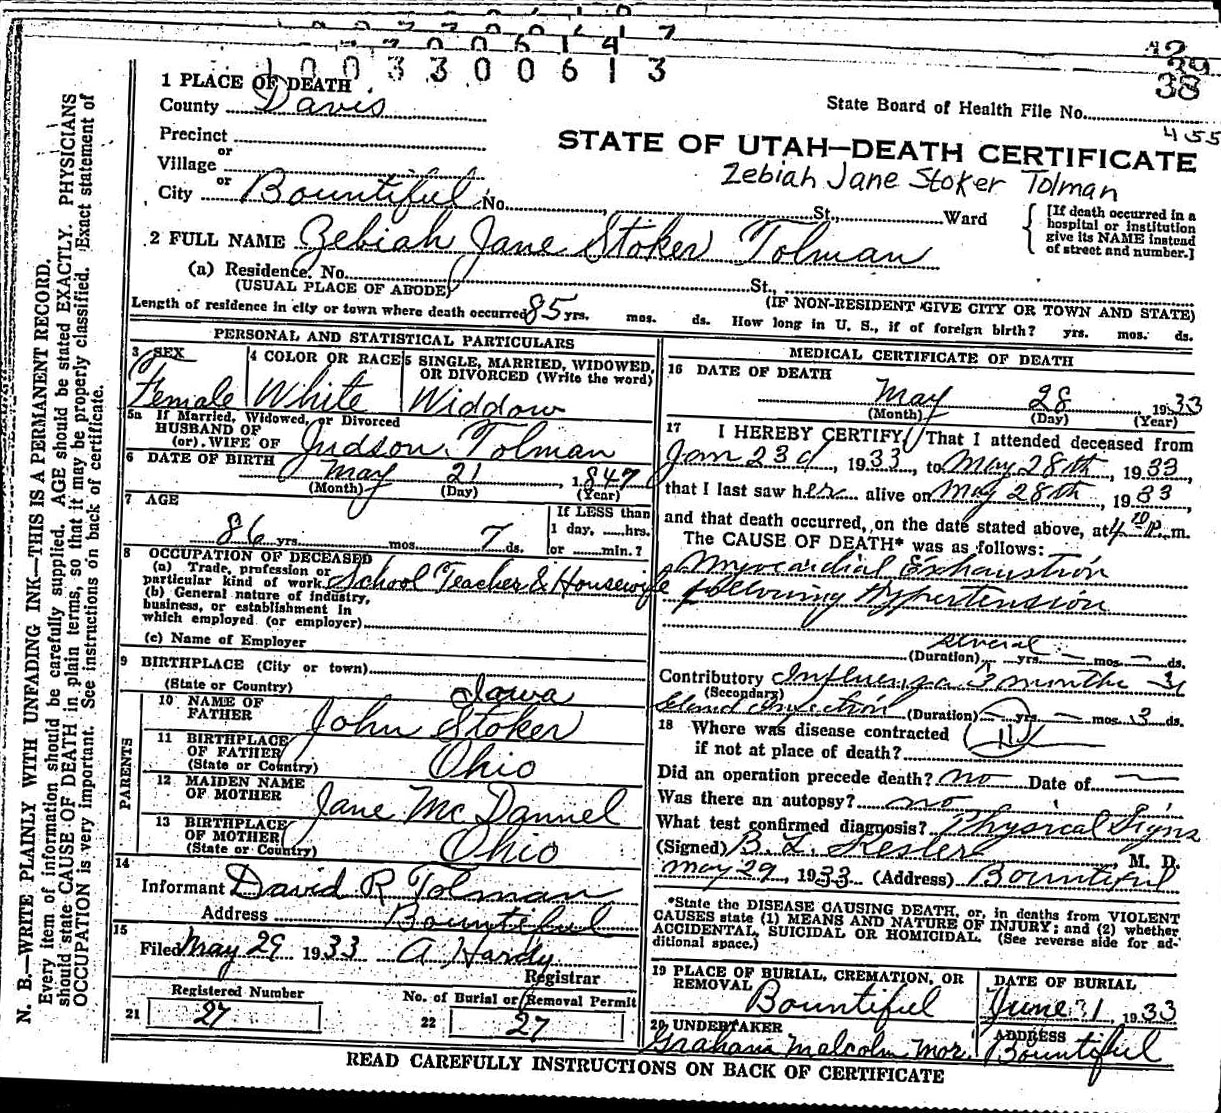 1003300613
42
39
38
State Board of Health File No.
455
1 PLACE OF DEATH
County Davis
Precinct
or
Village
or
City Bountiful No. St., Ward
STATE OF UTAH—DEATH CERTIFICATE
Zebiah Jane Stoker Tolman
[If death occurred in a
hospital or institution
give its NAME instead
of street and number.]
2 FULL NAME Zebiah Jane Stoker Tolman
(a) Residence. No. St.,
(USUAL PLACE OF ABODE) (IF NON-RESIDENT GIVE CITY OR TOWN AND STATE)
Length of residence in city or town where death occurred 85 yrs. mos. ds. How long in U. S., if of foreign birth? yrs. mos. ds.
PERSONAL AND STATISTICAL PARTICULARS
3 SEX
Female
4 COLOR OR RACE
White
5 SINGLE, MARRIED, WIDOWED,
OR DIVORCED (Write the word)
Widdow
5a If Married, Widowed, or Divorced
HUSBAND OF
(or) WIFE OF Judson Tolman
6 DATE OF BIRTH May 21, 1847
(Month) (Day) (Year)
7 AGE
86 yrs. mos. 7 ds.
If LESS than
1 day, hrs.
or min.?
8 OCCUPATION OF DECEASED
(a) Trade, profession or
particular kind of work School Teacher & Housewife
(b) General nature of industry,
business, or establishment in
which employed (or employer)
(c) Name of Employer
9 BIRTHPLACE (City or town)
(State or Country) Iowa
PARENTS
10 NAME OF
FATHER John Stoker
11 BIRTHPLACE
OF FATHER
(State or Country) Ohio
12 MAIDEN NAME
OF MOTHER Jane McDannel
13 BIRTHPLACE
OF MOTHER
(State or Country) Ohio
14
Informant David R Tolman
Address Bountiful
15
Filed May 29 1933 A Hardy
Registrar
Registered Number
21 27
No. of Burial or Removal Permit
22 27
MEDICAL CERTIFICATE OF DEATH
16 DATE OF DEATH
May 28, 1933
(Month) (Day) (Year)
17 I HEREBY CERTIFY, That I attended deceased from
Jan 23d, 1933, to May 28th, 1933,
that I last saw her alive on May 28th, 1933,
and that death occurred, on the date stated above, at 4 10 P. m.
The CAUSE OF DEATH* was as follows:
Myocardial Exhaustion
following Hypertension
several
(Duration) yrs. — mos. — ds.
Contributory Influenza 3 months
(Secondary)
(Duration) — yrs. — mos. 3 ds.
18 Where was disease contracted
if not at place of death?
Did an operation precede death? no Date of —
Was there an autopsy? no
What test confirmed diagnosis? Physical Signs
(Signed) B. L. Kesler, M. D.
May 29, 1933 (Address) Bountiful
*State the DISEASE CAUSING DEATH, or, in deaths from VIOLENT
CAUSES state (1) MEANS AND NATURE OF INJURY; and (2) whether
ACCIDENTAL, SUICIDAL OR HOMICIDAL. (See reverse side for ad-
ditional space.)
19 PLACE OF BURIAL, CREMATION, OR
REMOVAL Bountiful
DATE OF BURIAL
June 1, 1933
20 UNDERTAKER
Graham Malcolm Mor.
ADDRESS
Bountiful
READ CAREFULLY INSTRUCTIONS ON BACK OF CERTIFICATE
N. B.—WRITE PLAINLY WITH UNFADING INK—THIS IS A PERMANENT RECORD.
Every item of information should be carefully supplied. AGE should be stated EXACTLY. PHYSICIANS
should state CAUSE OF DEATH in plain terms, so that it may be properly classified. Exact statement of
OCCUPATION is very important. See instructions on back of certificate.